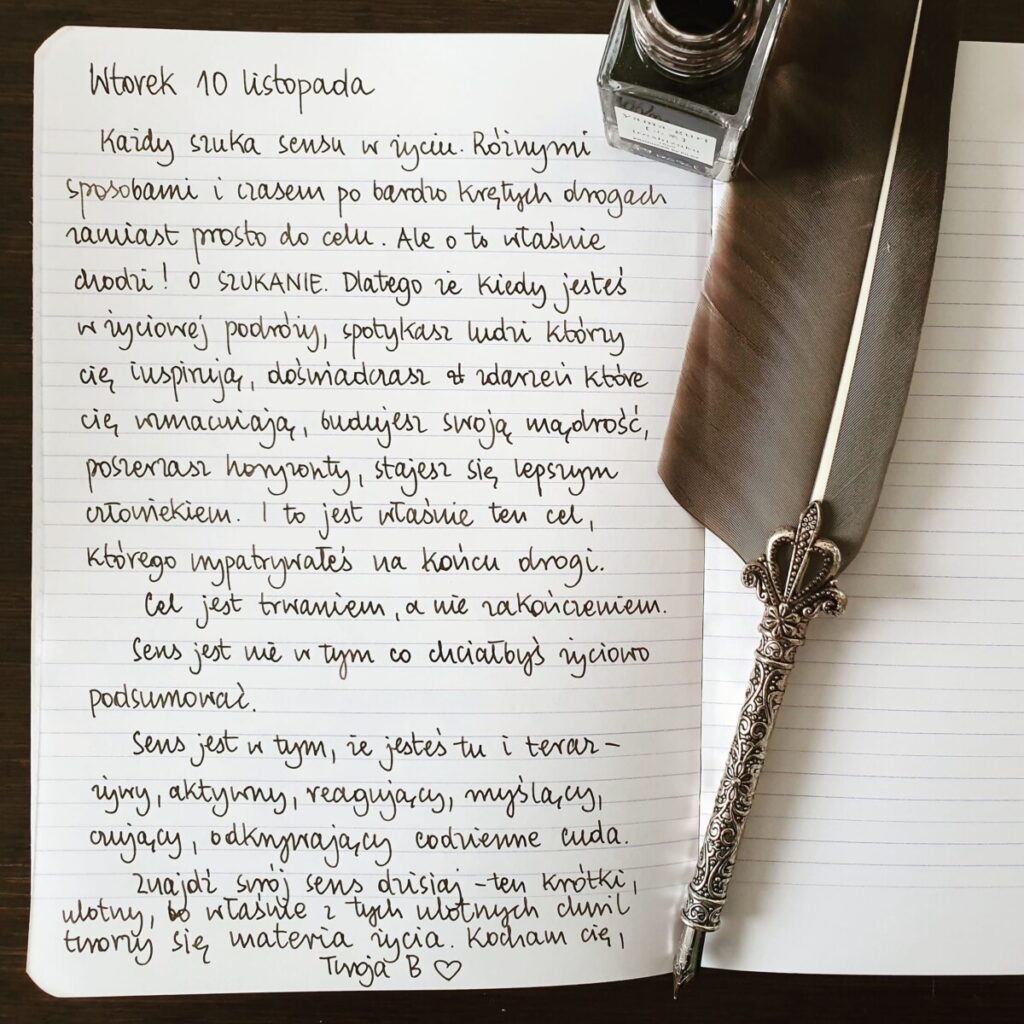 Wtorek 10 listopada
Każdy szuka sensu w życiu. Różnymi
sposobami i czasem po bardzo krętych drogach
zamiast prosto do celu. Ale o to właśnie
chodzi! O SZUKANIE. Dlatego że kiedy jesteś
w życiowej podróży, spotykasz ludzi którzy
cię inspirują, doświadczasz zdarzeń które
cię wzmacniają, budujesz swoją mądrość,
poszerzasz horyzonty, stajesz się lepszym
człowiekiem. I to jest właśnie ten cel,
którego wypatrywałeś na końcu drogi.
Cel jest trwaniem, a nie zakończeniem.
Sens jest nie w tym co chciałbyś życiowo
podsumować.
Sens jest w tym, że jesteś tu i teraz –
żywy, aktywny, reagujący, myślący,
czujący, odkrywający codzienne cuda.
Znajdź swój sens dzisiaj – ten krótki,
ulotny, bo właśnie z tych ulotnych chwil
tworzy się materia życia. Kocham cię,
Twoja B ♡
yama guri